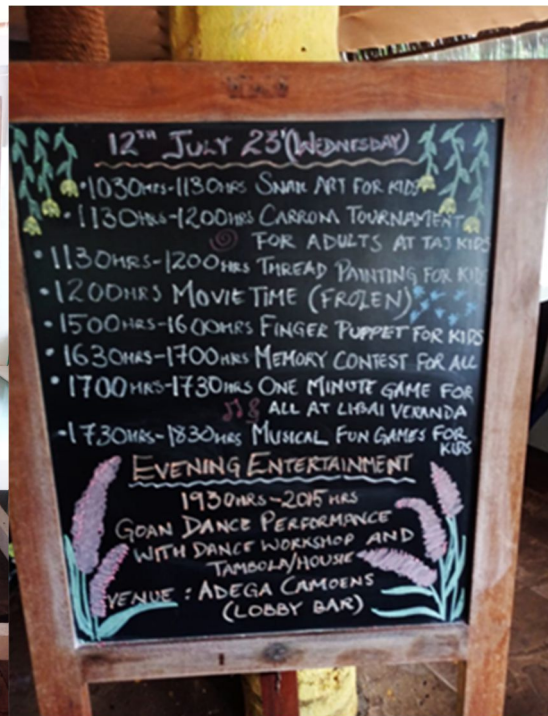 12TH JULY 23'(WEDNESDAY)
•1030HRS-1130HRS SNAIL ART FOR KIDS
•1130HRS-1200HRS CARROM TOURNAMENT
FOR ADULTS AT TAJ KIDS
•1130HRS-1200HRS THREAD PAINTING FOR KIDS
•1200HRS MOVIE TIME (FROZEN)
•1500HRS-1600HRS FINGER PUPPET FOR KIDS
•1630HRS-1700HRS MEMORY CONTEST FOR ALL
•1700HRS-1730HRS ONE MINUTE GAME FOR
ALL AT VERANDA
•1730HRS-1830HRS MUSICAL FUN GAMES FOR
KIDS
EVENING ENTERTAINMENT
1930HRS-2015HRS
GOAN DANCE PERFORMANCE
WITH DANCE WORKSHOP AND
TAMBOLA/HOUSIE
VENUE : ADEGA CAMOENS
(LOBBY BAR)